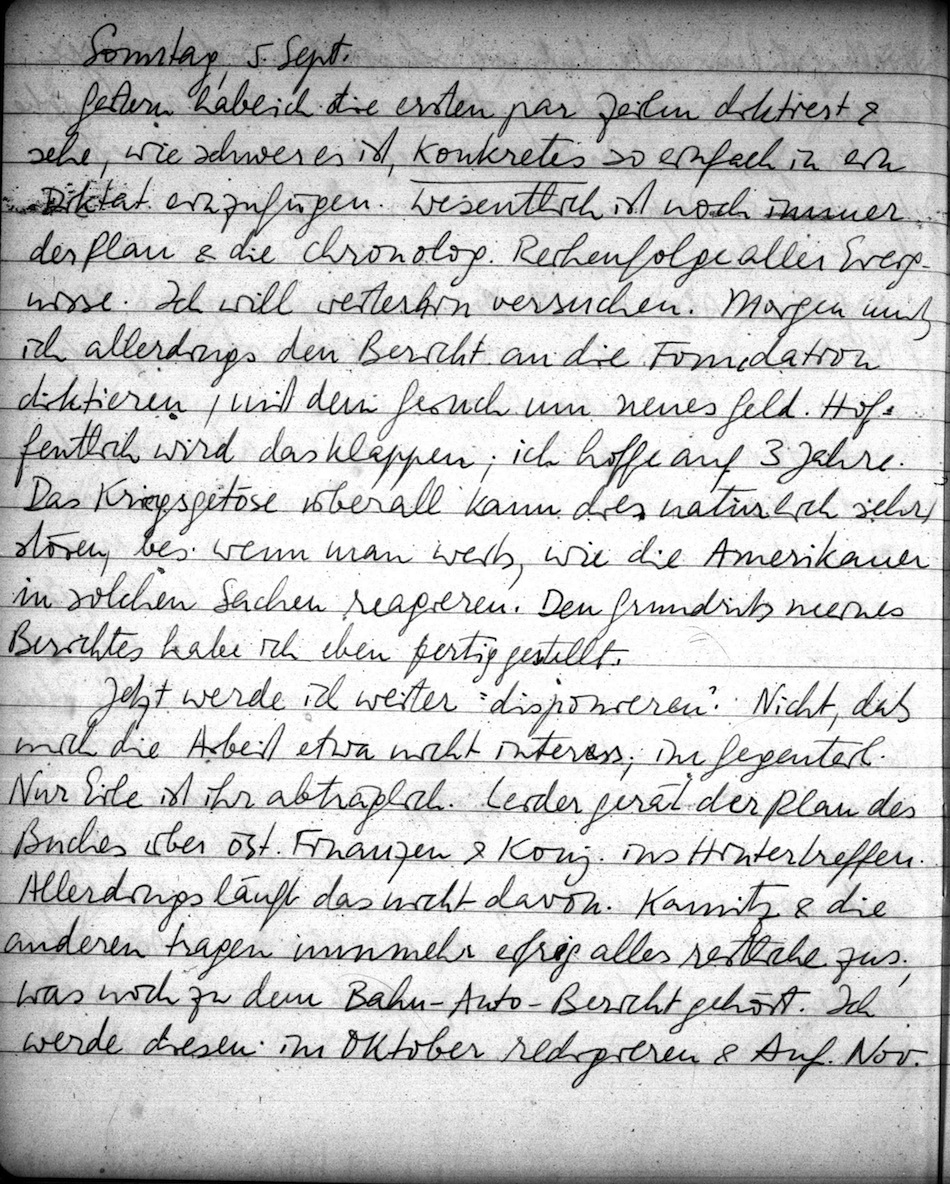 Sonntag, 5. Sept.
Gestern habe ich die ersten par Zeilen diktiert &
sehe, wie schwer es ist, Konkretes so einfach in ein
Diktat einzufügen. Wesentlich ist noch immer
der Plan & die chronolog. Reihenfolge aller Ereig-
nisse. Ich will weiterhin versuchen. Morgen muß
ich allerdings den Bericht an die Foundation
diktieren, mit dem Gesuch um neues Geld. Hof-
fentlich wird das klappen; ich hoffe auf 3 Jahre.
Das Kriegsgetöse überall kann dies natürlich sehr
stören, bes. wenn man weiß, wie die Amerikaner
in solchen Sachen reagieren. Den Grundriß meines
Berichtes habe ich eben fertiggestellt.
Jetzt werde ich weiter "disponieren". Nicht, daß
mich die Arbeit etwa nicht interess.; im Gegenteil.
Nur Eile ist ihr abträglich. Leider gerät der Plan des
Buches über öst. Finanzen & Konj. ins Hintertreffen.
Allerdings läuft das nicht davon. Kamitz & die
anderen tragen nunmehr eifrig alles restliche zus.,
was noch zu dem Bahn-Auto-Bericht gehört. Ich
werde diesen im Oktober redigieren & Anf. Nov.